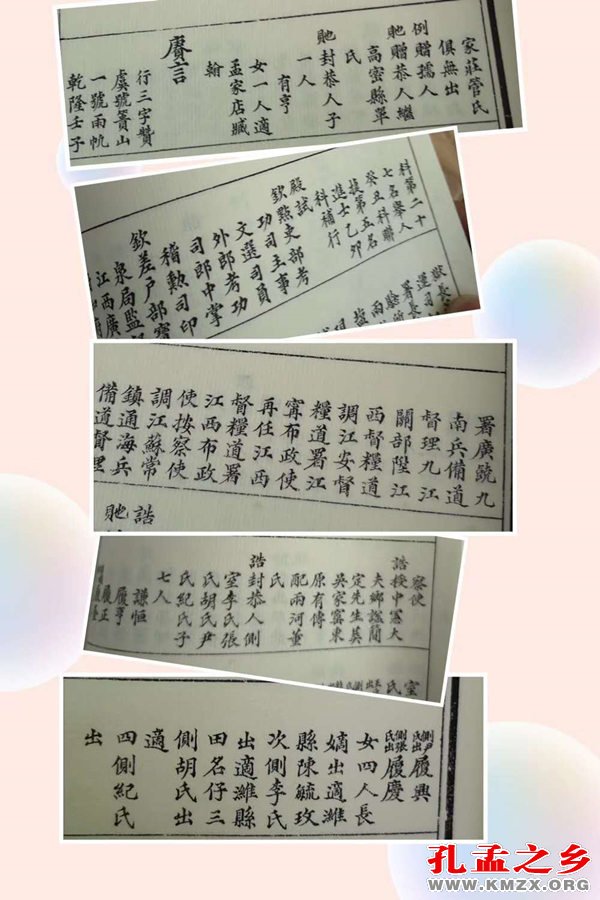 家莊管氏
俱無出
例贈孺人
貤贈恭人繼
高密縣單
氏
貤封恭人子
一人
有亨
女一人適
孟家店臧
翰
賡言
行三字贊
虞號簣山
一號雨帆
乾隆壬子
科第二十
七名舉人
癸丑科聯
捷第五名
進士乙卯
科補行
殿試
欽點吏部考
功司主事
文選司員
外郎考功
司郎中掌
稽勲司印
欽差戶部寶
泉局監
江西廣
署廣饒九
南兵備道
督理九江
關部陞江
西督糧道
調江安督
糧道署江
寗布政使
再任江西
督糧道署
江西布政
使按察使
調江蘇常
鎮通海兵
備道督理
誥
貤
察使
誥授中憲大
夫鄉諡簡
定先生葬
吳家窰東
原有傳
配兩河董
氏
誥封恭人側
室李氏張
氏胡氏尹
氏紀氏子
七人
謙恒
履亨
履正
側尹氏出履興
側張氏出履慶
女四人長
嫡出適濰
縣陳毓玫
次側李氏
出適濰縣
田名仔三
側胡氏出
適
四側紀氏
出
孔孟之乡
WWW.KMZX.ORG